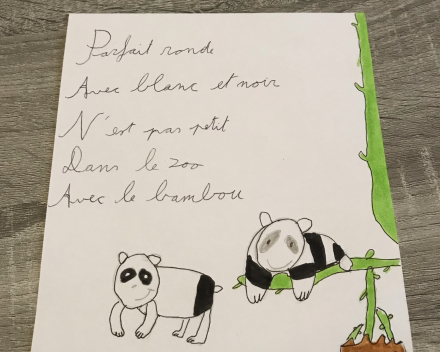 Parfait ronde
Avec blanc et noir
N'est pas petit
Dans le zoo
Avec le bambou